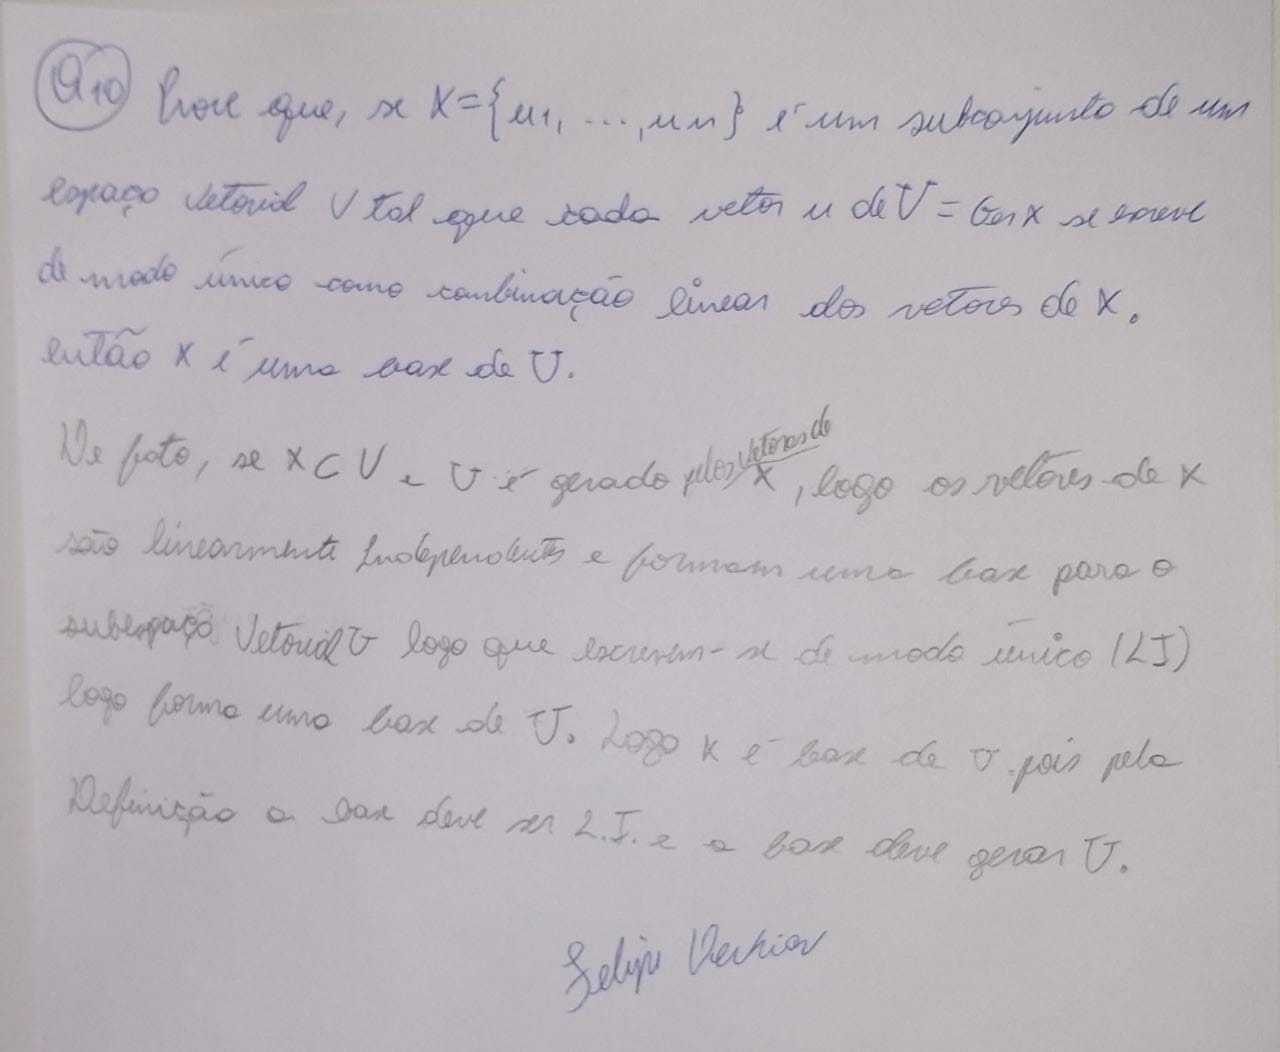 Q10 Prove que, se X={u1, ..., un} é um subconjunto de um
espaço vetorial V tal que cada vetor u de U = Ger X se escreve
de modo único como combinação linear dos vetores de X.
então X é uma base de U.
De fato, se X⊂V e U é gerado pelos vetores de X, logo os vetores de X
são linearmente Independentes e formam uma base para o
subespaço Vetorial U logo que escrevem-se de modo único (LI)
logo forma uma base de U. Logo X é base de U. pois pela
Definição a base deve ser L.I. e a base deve gerar U.
Felipe